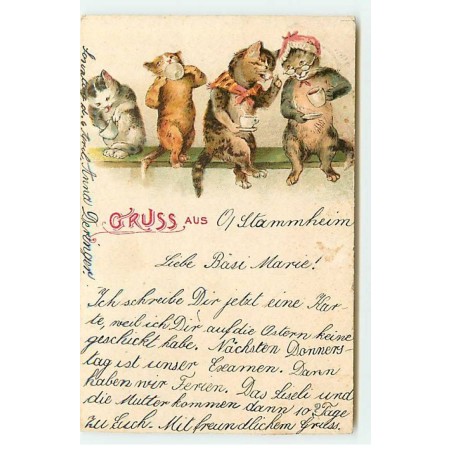 GRUSS AUS O/Stammheim
Liebe Bäsi Marie!
Ich schreibe Dir jetzt eine Kar-
te, weil ich Dir auf die Ostern keine
geschickt habe. Nächsten Donners-
tag ist unser Examen. Dann
haben wir Ferien. Das Liseli und
die Mutter kommen dann 10 Tage
zu Euch. Mit freundlichem Gruss.
Anna Deringer.